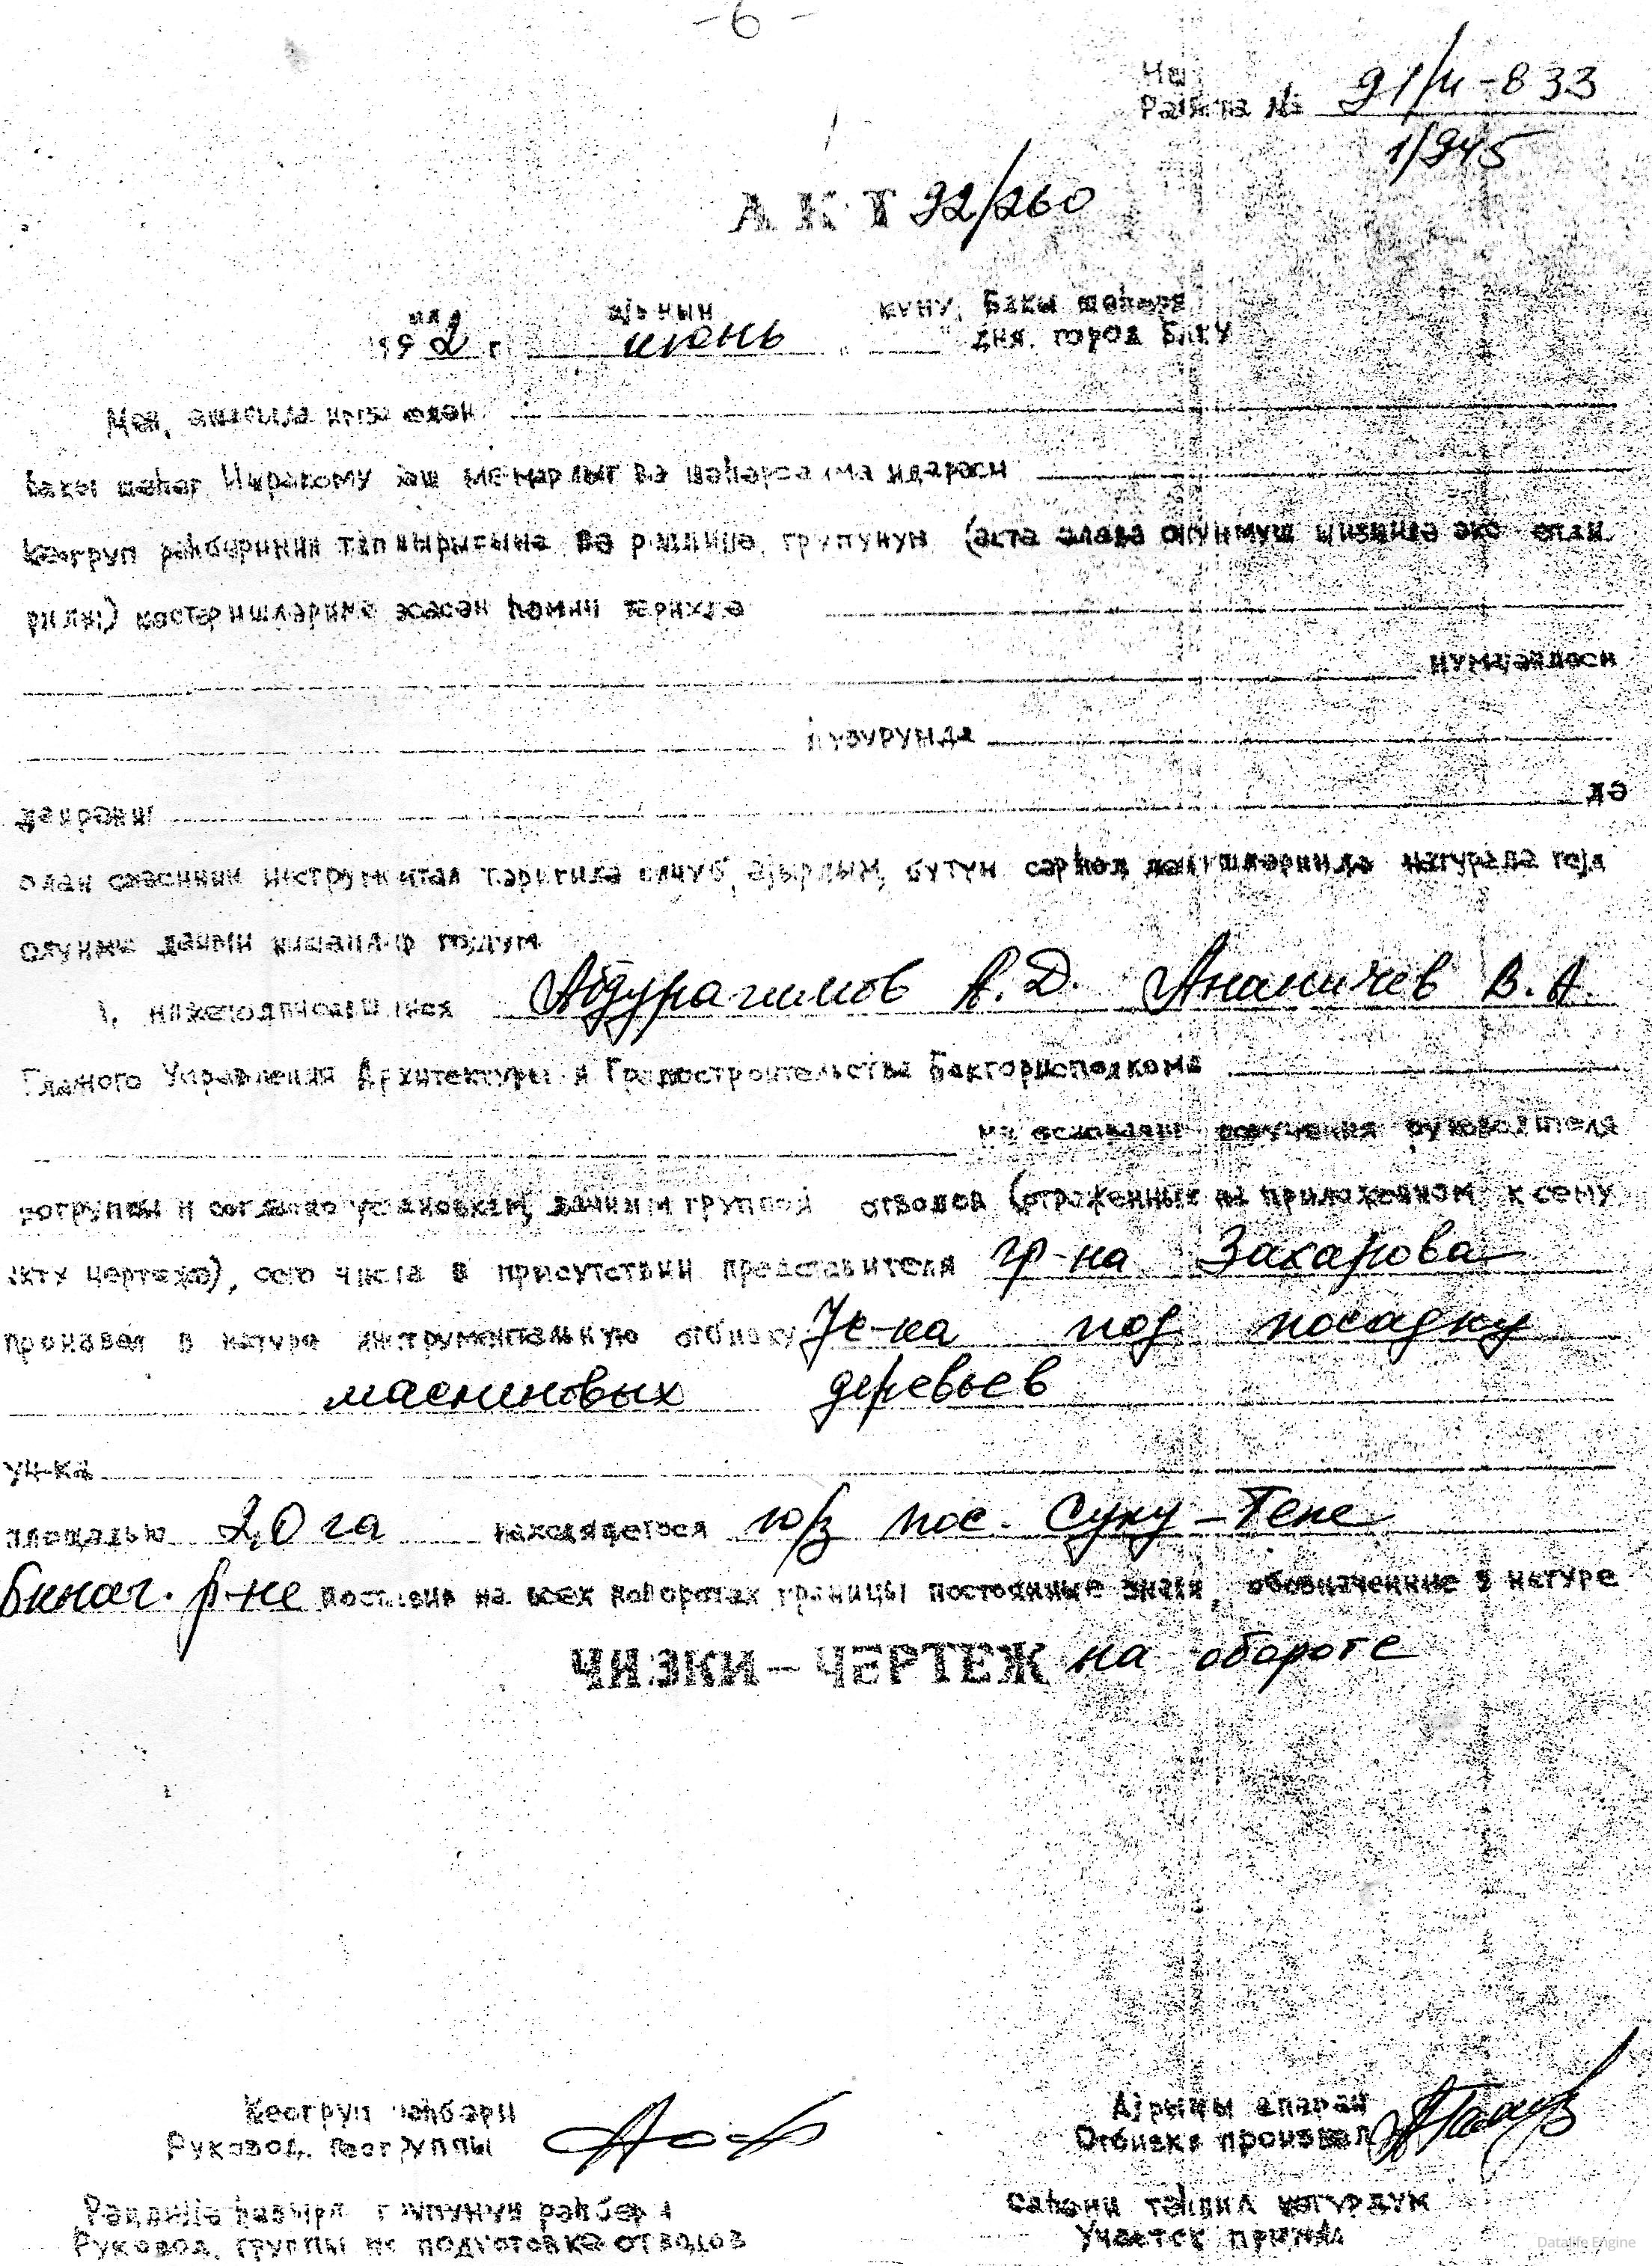 - 6 -
91/4-833
1/945
АКТ 92/260
ајынын күнү, Бакы шәһәри
1992 г. июнь дня. город Баку
Мән, ашағыда имза едән
Бакы шәһәр Иҹракому баш ме'марлыг вә шәһәрсалма идарәси
рәһбәринин тапшырығына вә групунун (акта әлавә олунмуш
көстәришләринә әсасән һәмин тарихдә
нүмајәндәси
һузурунда
даирәни дә
олан саһәсинин инструментал өлчүб, ајырдым, бүтүн натурада
олунмуш даими нишанлар гојдум
нижеподписавшиеся Абдурагимов А.Д. Ананичев В.А.
Главного Управления Архитектуры и Градостроительства Бакгорисполкома
на основании поручения руководителя
геогруппы и согласно установкам, данным группой отводов (отраженных на приложенном к сему
акту чертеже), сего числа в присутствии представителя гр-на Захарова
произвел в натуре инструментальную отбивку уч-ка под посадку
маслиновых деревьев
уч-ка
площадью 2,0 га находящегося ю/з пос. Сулу-Тепе
Бинаг. р-не поставив на всех поворотах границы постоянные знаки, обозначенные в натуре
ЧИЗКИ - ЧЕРТЕЖ на обороте
Кеогруп рәһбәри
Руковод. геогруппы
Ајрыны апаран
Отбивку произвел
групунун рәһбәри
Руковод. группы по подготовке отводов
Саһәни тәһвил
Участок принял
Datalife Engine